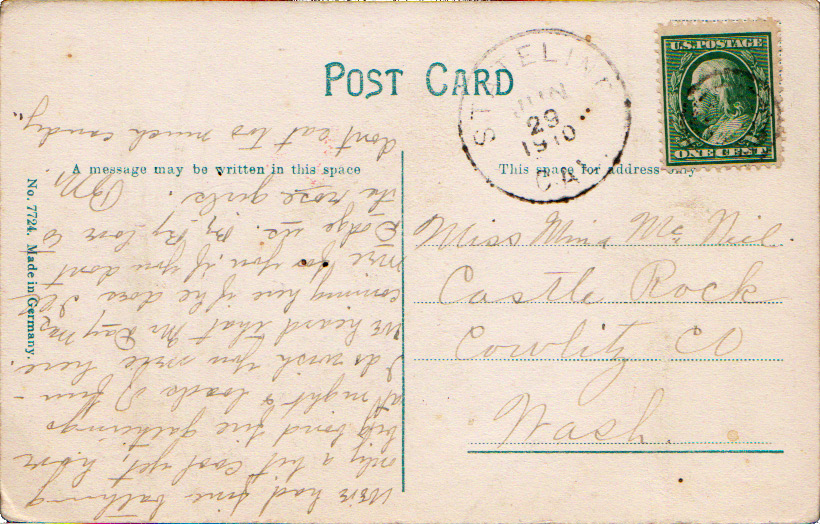 POST CARD
U.S. POSTAGE
ONE CENT
STATELINE
JUN
29
1910
CAL.
A message may be written in this space
This space for address only
No. 7724. Made in Germany.
Miss Mina Mc Neil.
Castle Rock
Cowlitz CO
Wash.
We've had fine bathing
only a bit cool yet, have
big bond fire gatherings
at night & loads of fun
I do wish you were here.
We heard that Mr Day was
coming here if he does I'll
wire for you if you dont
Dodge us. By By love to
the rose girls.
dont eat too much candy.